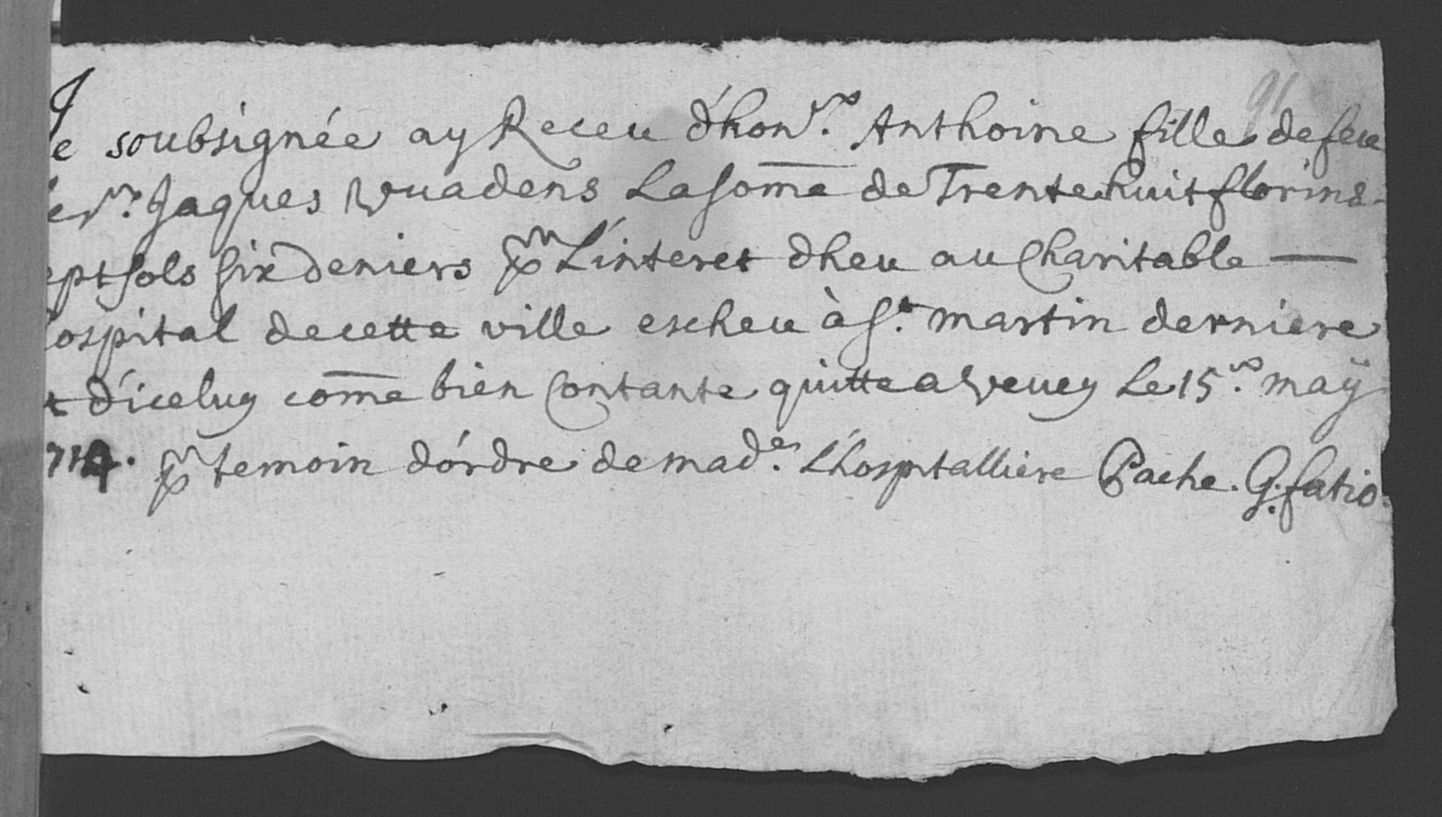 91
Je soubsignée ay Receu d'hon.ble Anthoine fille de feu
le Sr. Jaques Vuadens La some de Trente huit florins
ept sols six deniers pr L'interet dheu au Charitable —
ospital de cette ville escheu à St. martin derniere
t d'iceluy come bien Contante quitte a Vevey Le 15.e maÿ
714. pr temoin d'ordre de made. L'hospitalliere Pache. G. fatio.